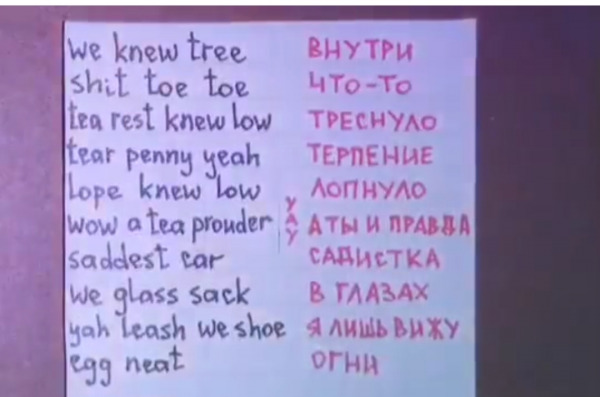 we knew tree ВНУТРИ
shit toe toe ЧТО-ТО
tea rest knew low ТРЕСНУЛО
tear penny yeah ТЕРПЕНИЕ
lope knew low ЛОПНУЛО
wow a tea prouder УАУ А ТЫ И ПРАВДА
saddest car САДИСТКА
we glass sack В ГЛАЗАХ
yah leash we shoe Я ЛИШЬ ВИЖУ
egg neat ОГНИ